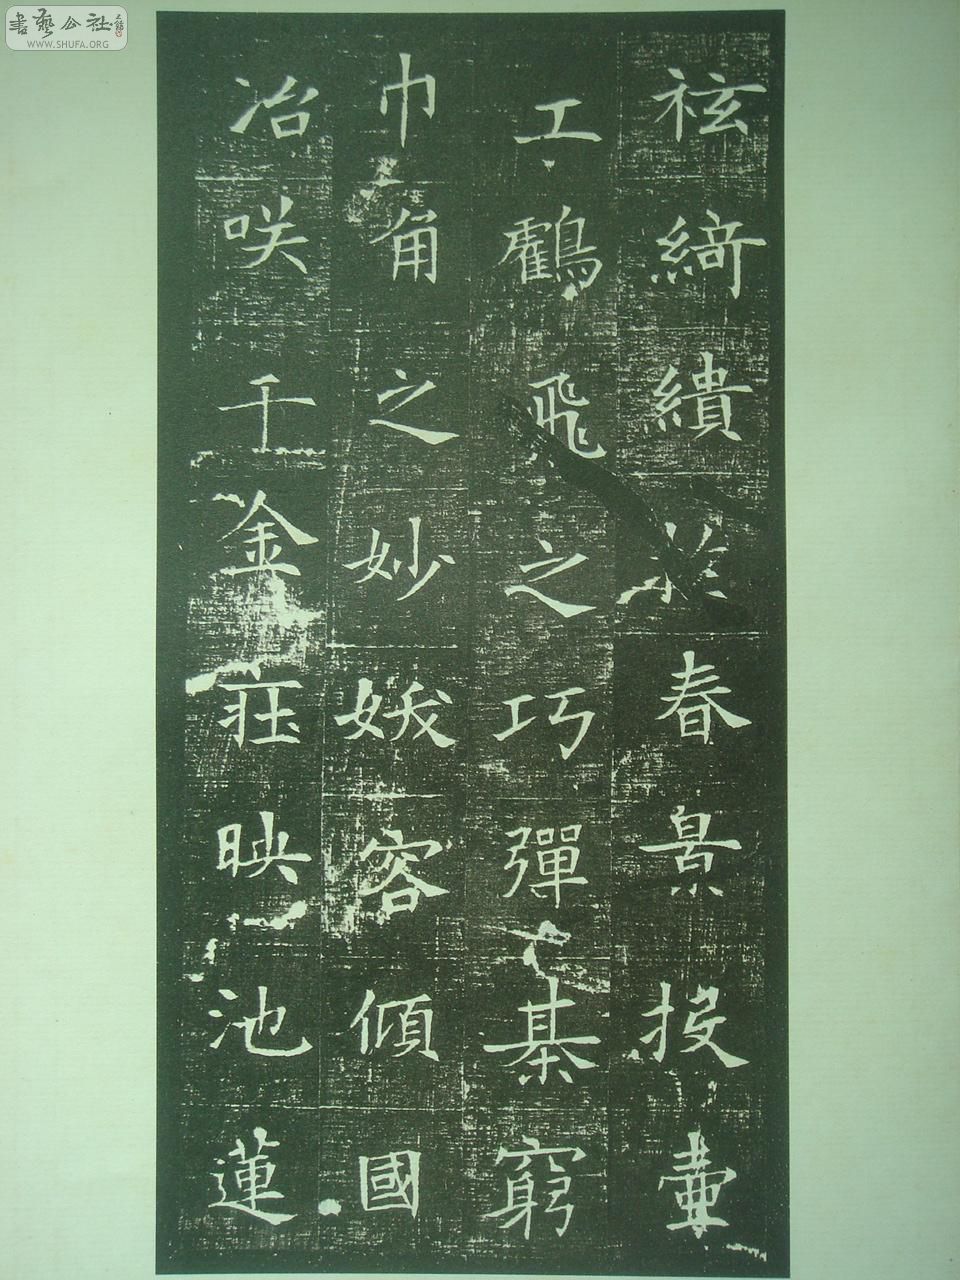 袨綺繢於春景投壺
工鸖飛之巧彈棊窮
巾角之妙娥容傾國
冶咲千金莊映池蓮
書藝公社
WWW.SHUFA.ORG